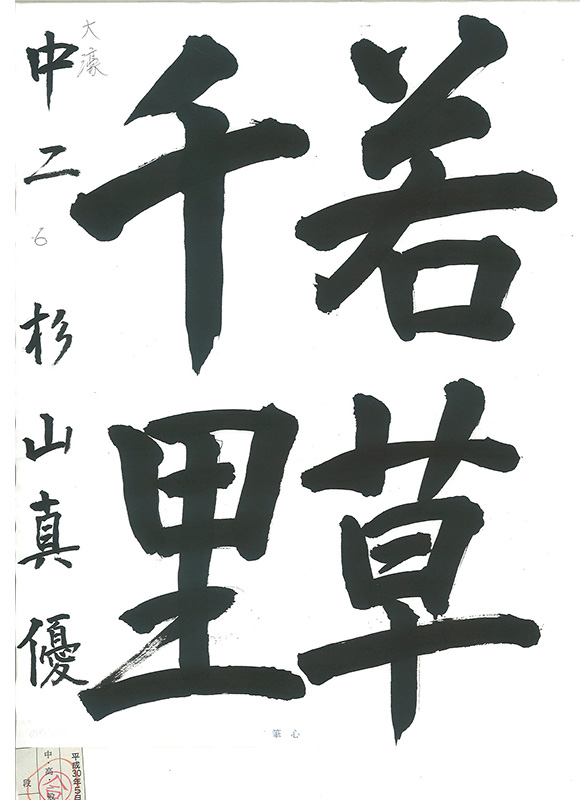 若草
千里
大濠
中二 杉山真優
6
心筆
平成30年5月
中・高・
段